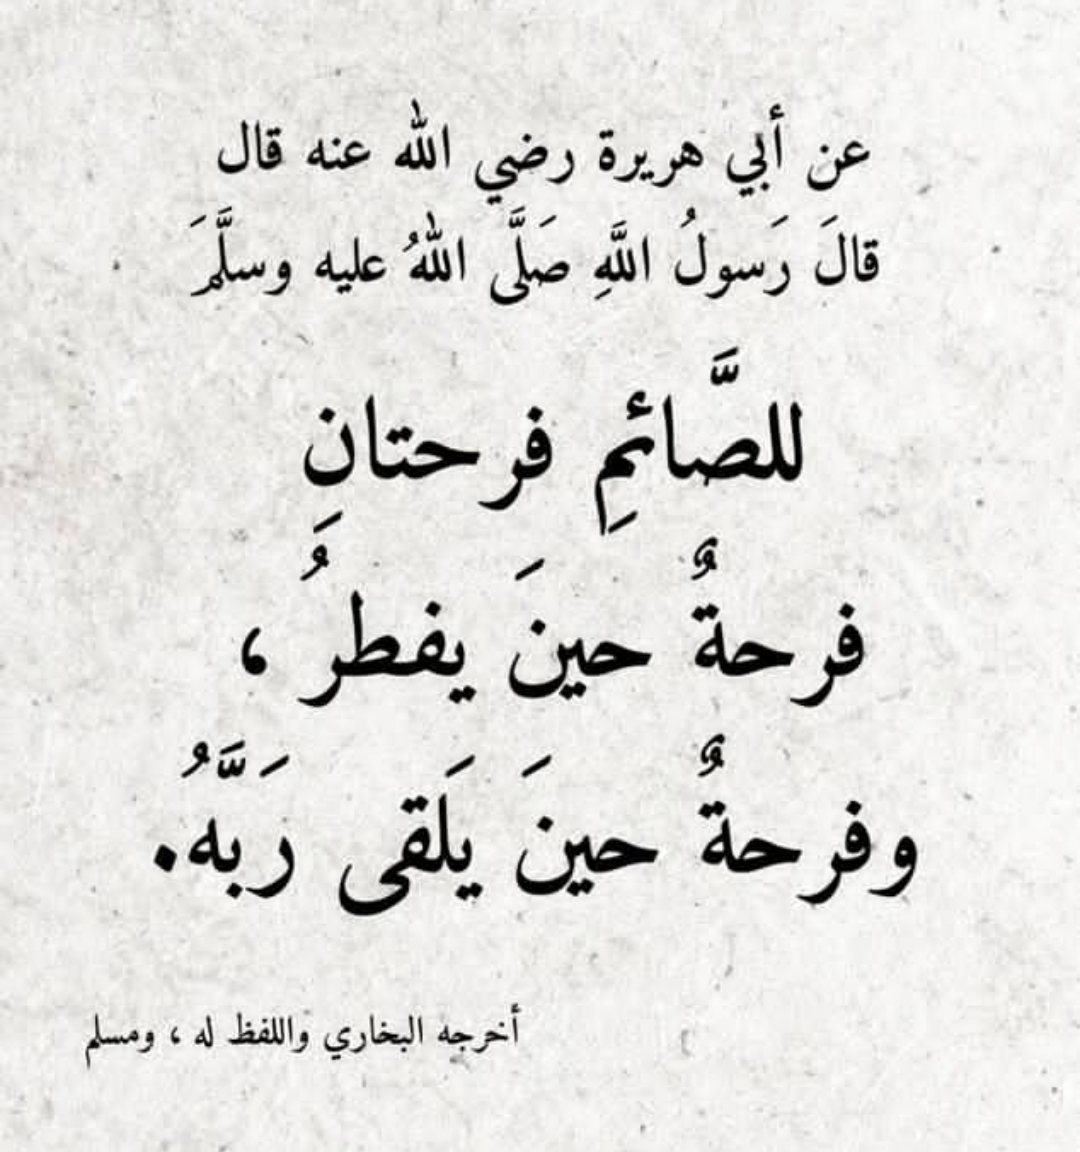 عن أبي هريرة رضي الله عنه قال
قالَ رَسولُ اللَّهِ صَلَّى اللهُ عليه وسلَّمَ
للصَّائمِ فرحتانِ
فرحةٌ حينَ يفطرُ ،
وفرحةٌ حينَ يَلقى رَبَّهُ.
أخرجه البخاري واللفظ له ، ومسلم